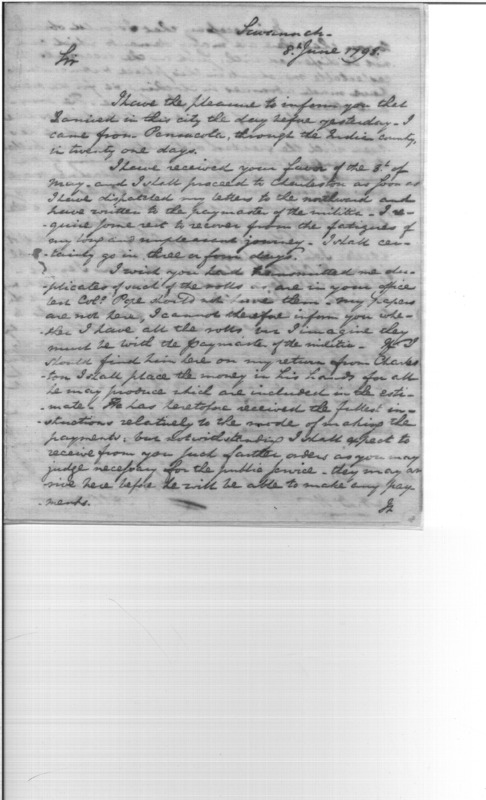 Savannah
8th June 1798.
Sir
I have the pleasure to inform you that
I arrived in this city the day before yesterday. I
came from Pensacola, through the Indian county,
in twenty one days.
I have received your favor of the 3d of
May - and I shall proceed to Charleston as soon as
I have dispatched my letters to the northward and
have written to the paymaster of the militia - I re-
quire some rest to recover from the fatigues of
my long and unpleasant journey - I shall cer-
-tainly go in three or four days.
I wish you had transmitted me du-
plicates of such of the rolls as are in your office
lest Colo. Pope should not have them - my papers
are not here, I cannot therefore inform you whe-
ther I have all the rolls but I imagine they
must be with the paymaster of the militia - If I
should find him here on my return from Charles-
-ton I shall place the money in his hands for all
he may produce which are included in the esti-
mate - He has heretofore received the fullest in-
-structions relatively to the mode of making the
payments, but notwithstanding I shall expect to
receive from you such farther orders as you may
judge necessary for the public service - they may ar
rive here before he will be able to make any pay
-ments.